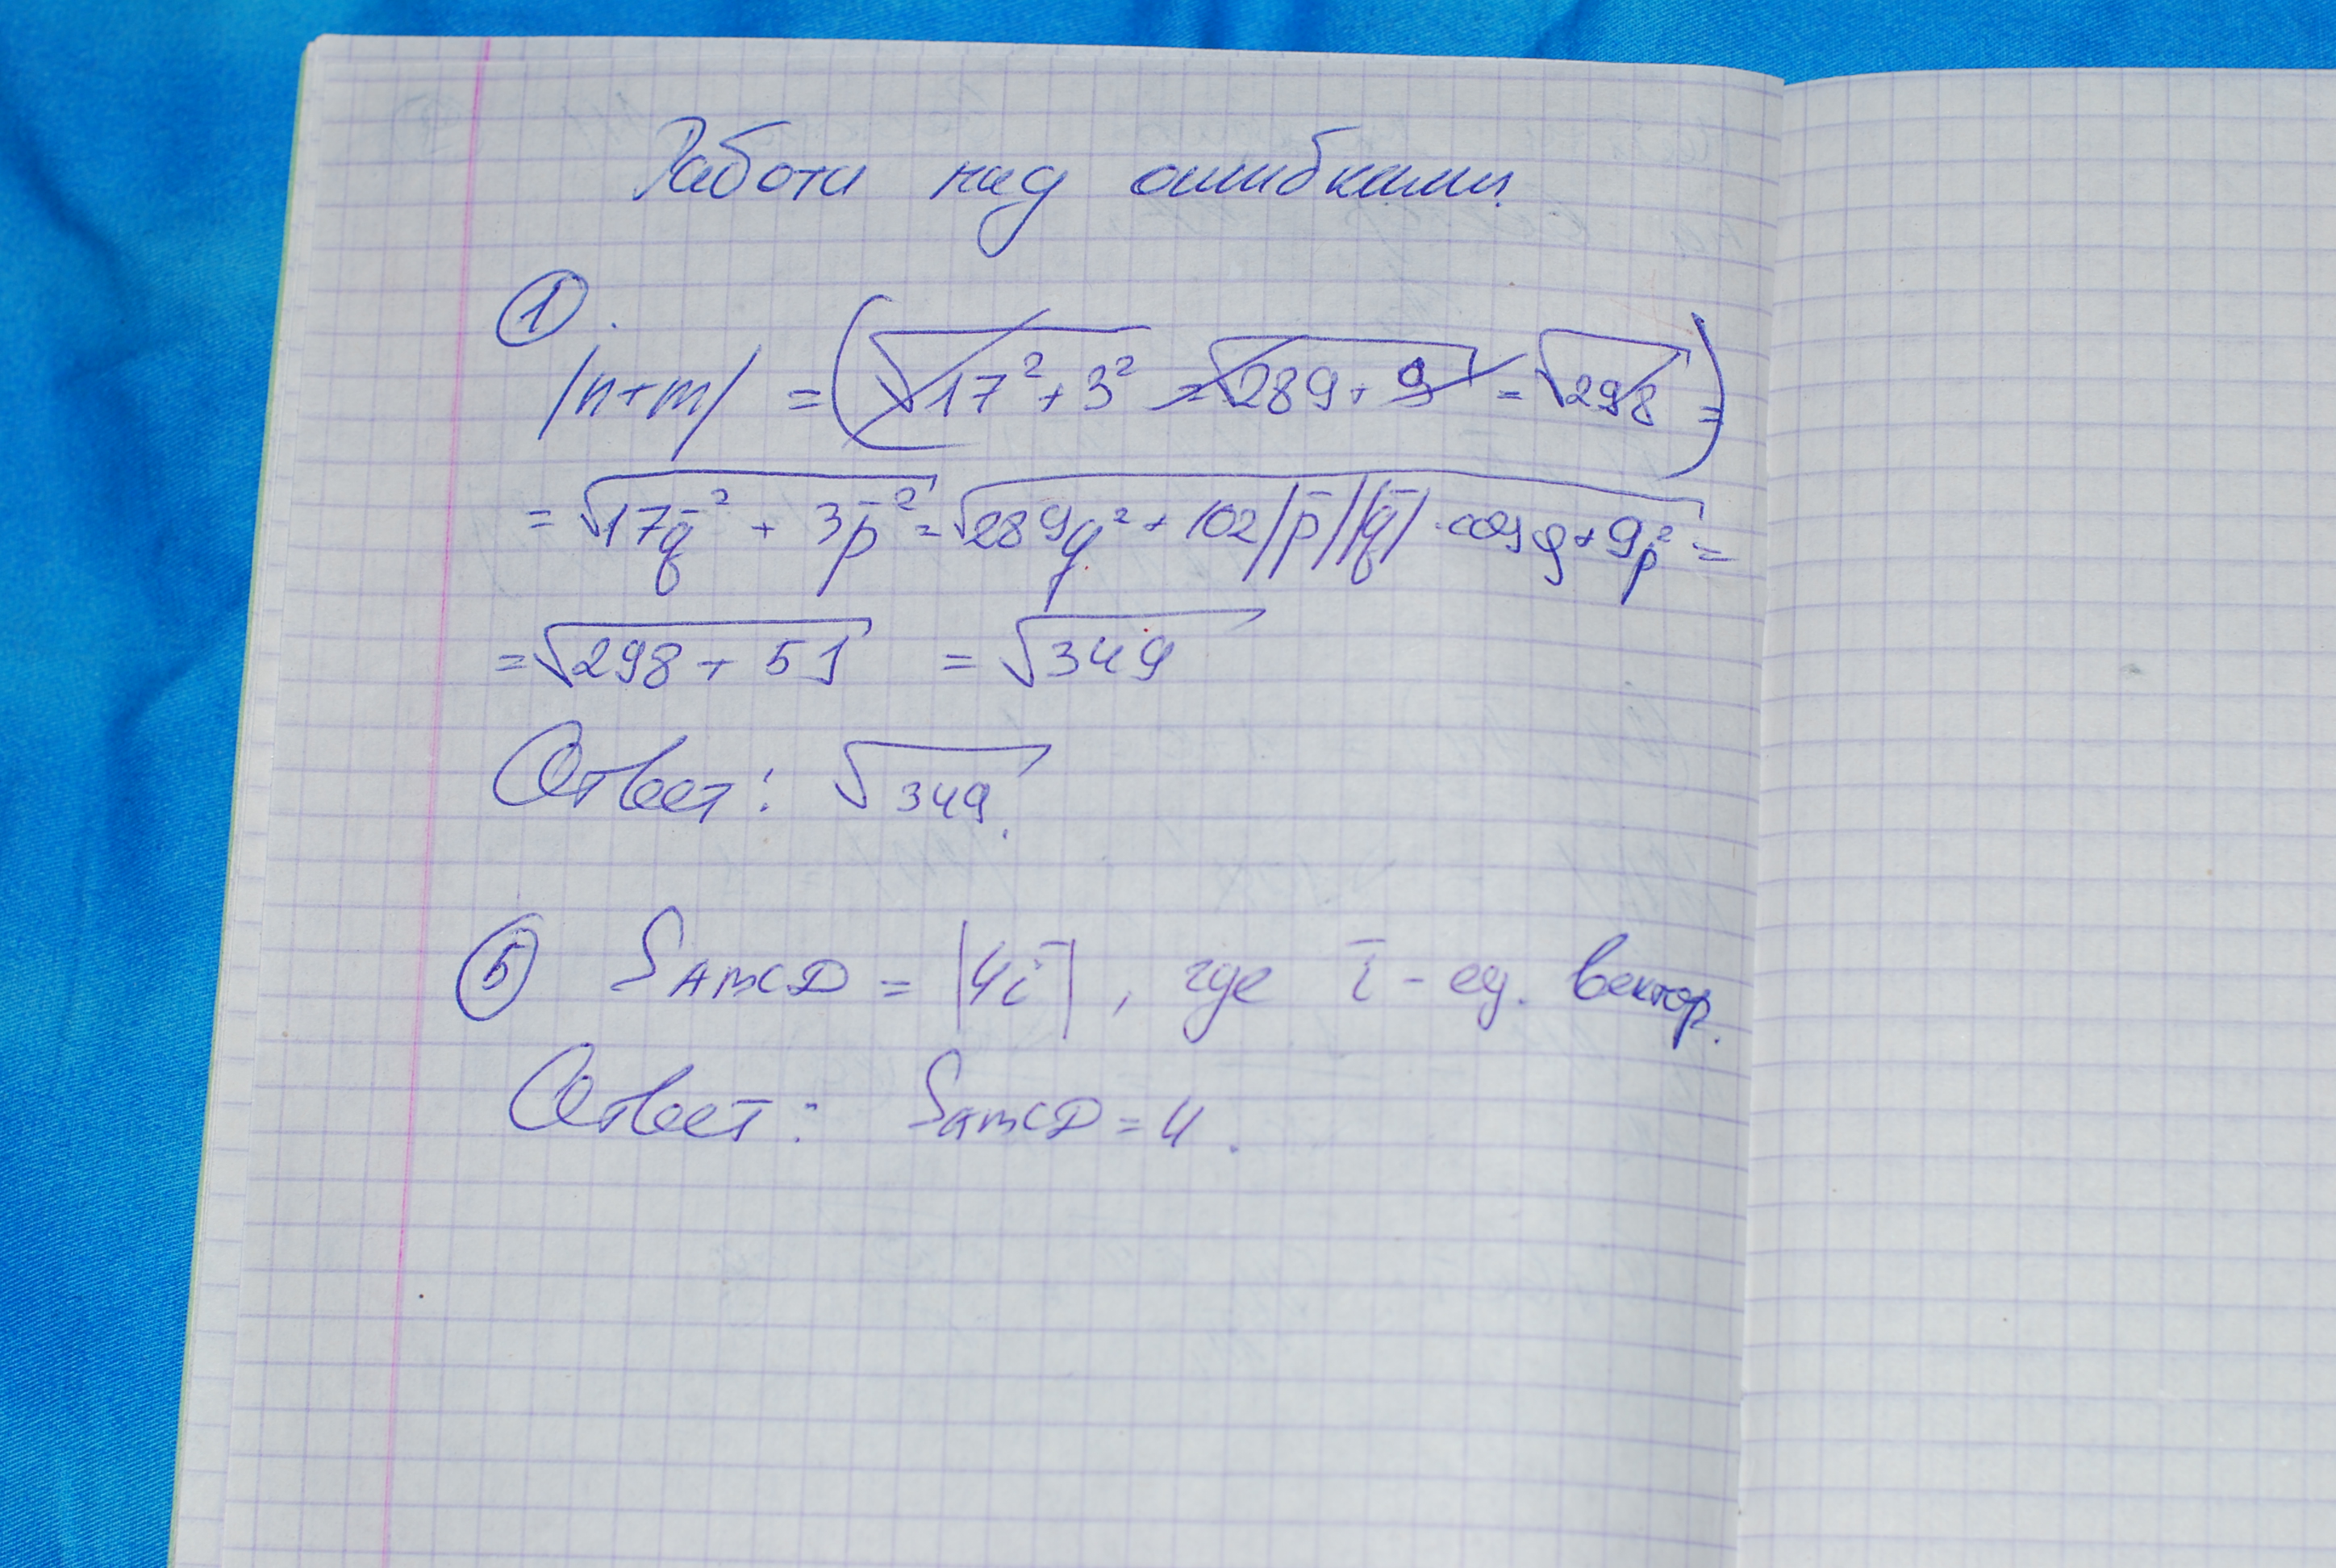 Работа над ошибками
①
|n+m| = (√17² + 3² = √289 + 9 = √298 =)
= √17q̄² + 3p̄² = √289q² + 102|p̄||q̄| · cos φ + 9p² =
= √298 + 51 = √349
Ответ: √349.
⑤ SAMCD = |4ī|, где ī - ед. вектор.
Ответ: SAMCD = 4.